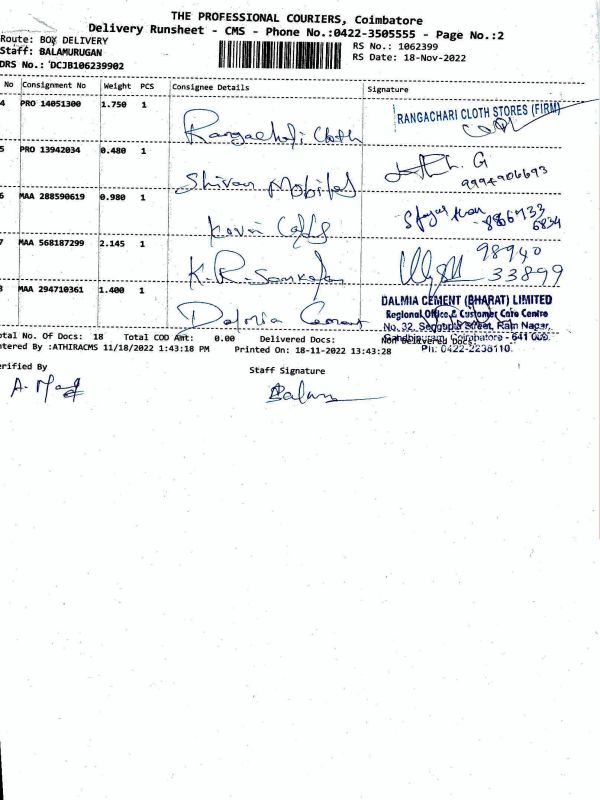 THE PROFESSIONAL COURIERS, Coimbatore
Delivery Runsheet - CMS - Phone No.:0422-3505555 - Page No.:2
Route: BOX DELIVERY
Staff: BALAMURUGAN
DRS No.: DCJB106239902
RS No.: 1062399
RS Date: 18-Nov-2022
No Consignment No Weight PCS Consignee Details Signature
4 PRO 14051300 1.750 1
Rangachari Cloth
RANGACHARI CLOTH STORES (FIRM)
5 PRO 13942034 0.480 1
Shivam Mobiles G
9994906693
6 MAA 288590619 0.980 1
6834
7 MAA 568187299 2.145 1
K.R. Sankaran
98940
33899
MAA 294710361 1.400 1
Dalmia Cement
DALMIA CEMENT (BHARAT) LIMITED
Regional Office & Customer Care Centre
No. 32, Sengupta Street, Ram Nagar,
Gandhipuram, Coimbatore - 641 009.
Ph: 0422-2238110.
otal No. Of Docs: 18 Total COD Amt: 0.00 Delivered Docs: Non Delivered Docs:
ntered By :ATHIRACMS 11/18/2022 1:43:18 PM Printed On: 18-11-2022 13:43:28
erified By
Staff Signature
Balam